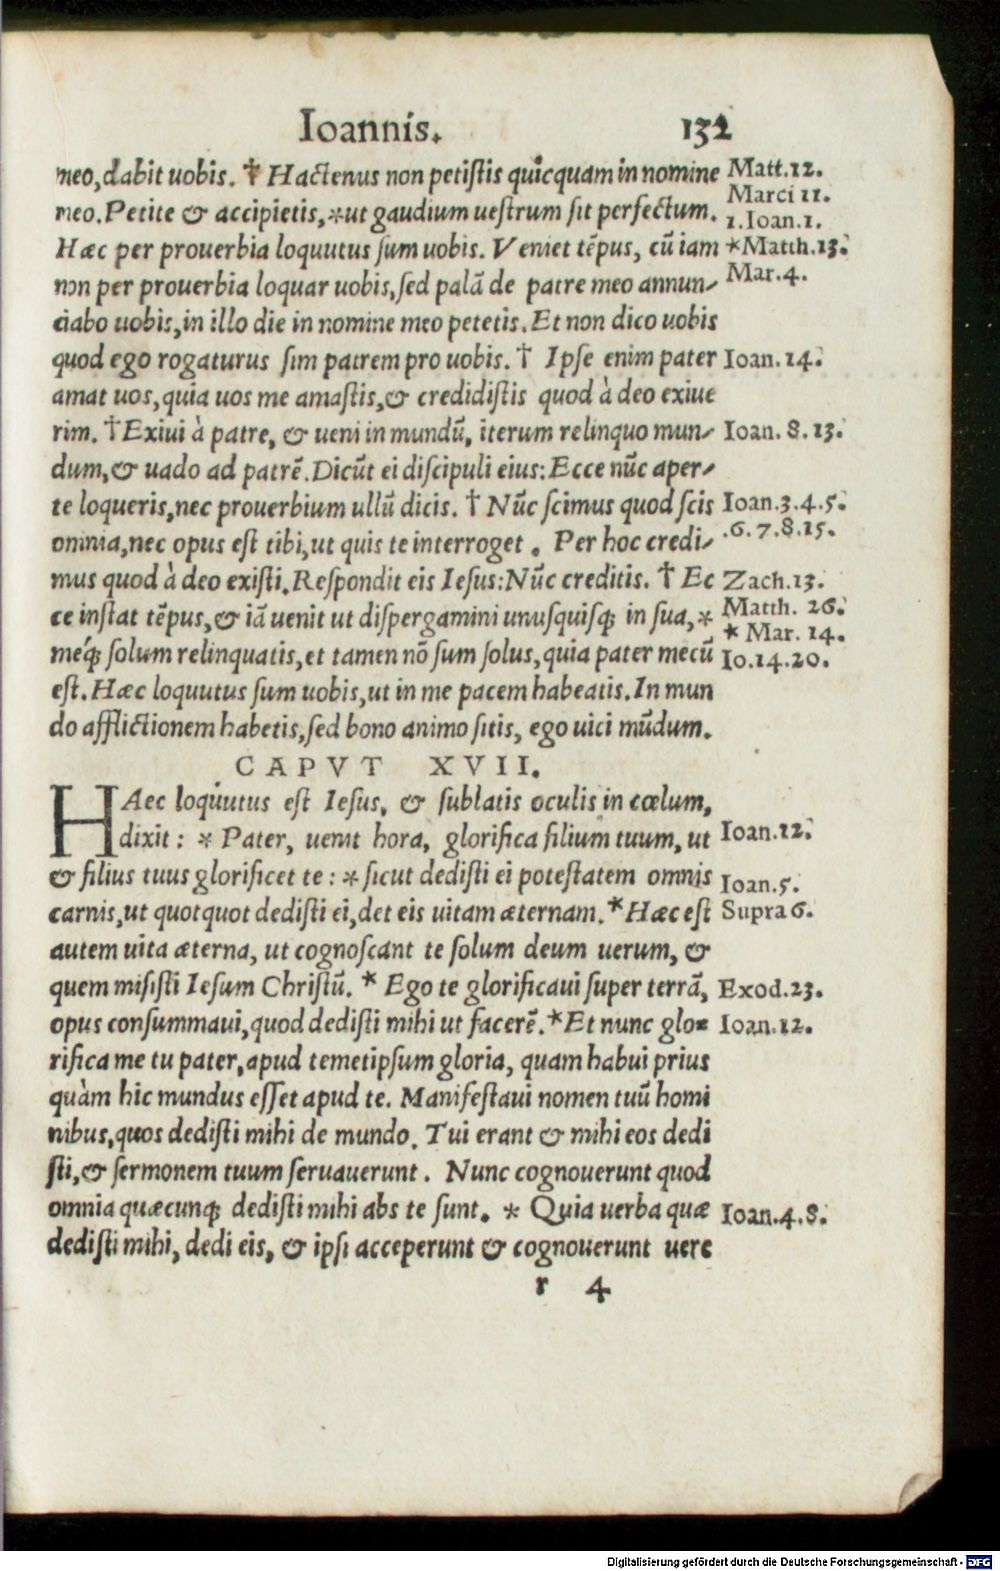 Ioannis. 132
meo, dabit uobis. † Hactenus non petiſtis quicquam in nomine Matt.12.
Marci 11.
meo. Petite & accipietis, *ut gaudium ueſtrum ſit perfectum. 1.Ioan.1.
Hæc per prouerbia loquutus ſum uobis. Veniet tẽpus, cũ iam *Matth.13.
non per prouerbia loquar uobis, ſed palã de patre meo annun- Mar.4.
ciabo uobis, in illo die in nomine meo petetis. Et non dico uobis
quod ego rogaturus ſim patrem pro uobis. † Ipſe enim pater Ioan.14.
amat uos, quia uos me amaſtis, & credidiſtis quod à deo exiue
rim. † Exiui à patre, & ueni in mundũ, iterum relinquo mun- Ioan. 8.13.
dum, & uado ad patrẽ. Dicũt ei diſcipuli eius: Ecce nũc aper-
te loqueris, nec prouerbium ullũ dicis. † Nũc ſcimus quod ſcis Ioan.3.4.5.
omnia, nec opus eſt tibi, ut quis te interroget. Per hoc credi- .6.7.8.15.
mus quod à deo exiſti. Reſpondit eis Ieſus: Nũc creditis. † Ec Zach.13.
ce inſtat tẽpus, & iã uenit ut diſpergamini unuſquiſqꝫ in ſua, * Matth. 26.
* Mar. 14.
meqꝫ́ ſolum relinquatis, et tamen nõ ſum ſolus, quia pater mecũ Io.14.20.
eſt. Hæc loquutus ſum uobis, ut in me pacem habeatis. In mun
do afflictionem habetis, ſed bono animo ſitis, ego uici mũdum.
CAPVT XVII.
HAec loquutus eſt Ieſus, & ſublatis oculis in cœlum,
dixit: * Pater, uenit hora, glorifica filium tuum, ut Ioan.12.
& filius tuus glorificet te: * ſicut dediſti ei poteſtatem omnis Ioan.5.
carnis, ut quotquot dediſti ei, det eis uitam æternam. * Hæc eſt Supra 6.
autem uita æterna, ut cognoſcant te ſolum deum uerum, &
quem miſiſti Ieſum Chriſtũ. * Ego te glorificaui ſuper terrã, Exod.23.
opus conſummaui, quod dediſti mihi ut facerẽ. * Et nunc glo- Ioan.12.
rifica me tu pater, apud temetipſum gloria, quam habui prius
quàm hic mundus eſſet apud te. Manifeſtaui nomen tuũ homi
nibus, quos dediſti mihi de mundo. Tui erant & mihi eos dedi
ſti, & ſermonem tuum ſeruauerunt. Nunc cognouerunt quod
omnia quæcunqꝫ dediſti mihi abs te ſunt. * Quia uerba quæ Ioan.4.8.
dediſti mihi, dedi eis, & ipſi acceperunt & cognouerunt uere
r 4
Digitalisierung gefördert durch die Deutsche Forschungsgemeinschaft - DFG